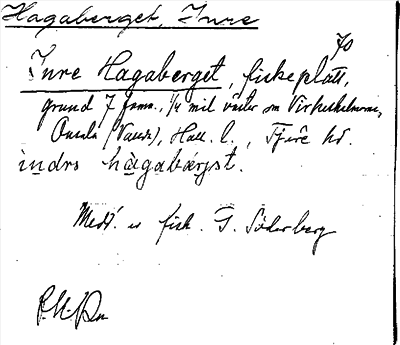 Hagaberget, Inre
70
Inre Hagaberget, fiskeplats,
grund 7 famn., 1/4 mil väster om
Onsala (Vands), Hall. l., Fjäre hd.
indrs hagabærgst.
Medd. av fisk. G. Söderberg